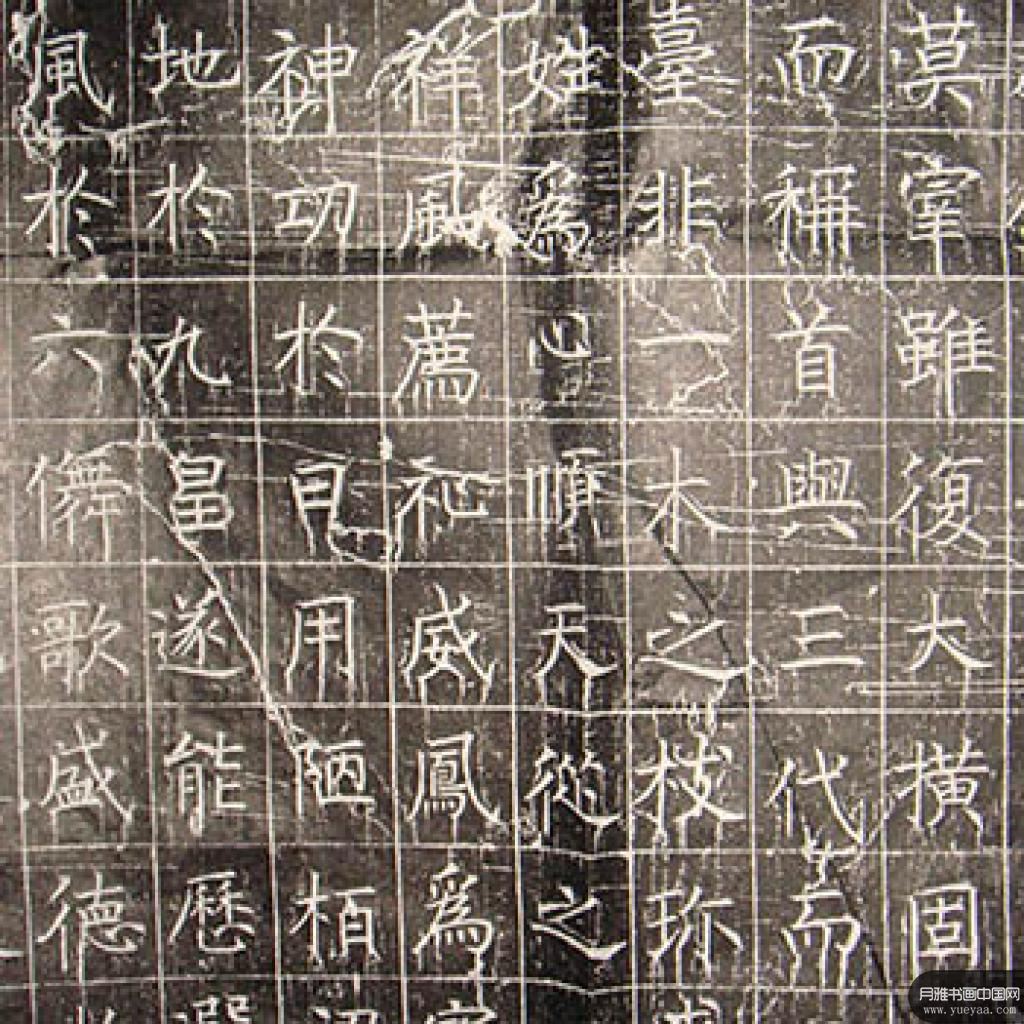 莫宰雖復大橫固
而稱首與三代而
臺非一木之枝珎
姓為心順天從之
祥風薦祉威鳳爲
神功於見用陋栢
地於九畐遂能歷
風於六儛歌盛德
月雅书画中国网
www.yueyaa.com